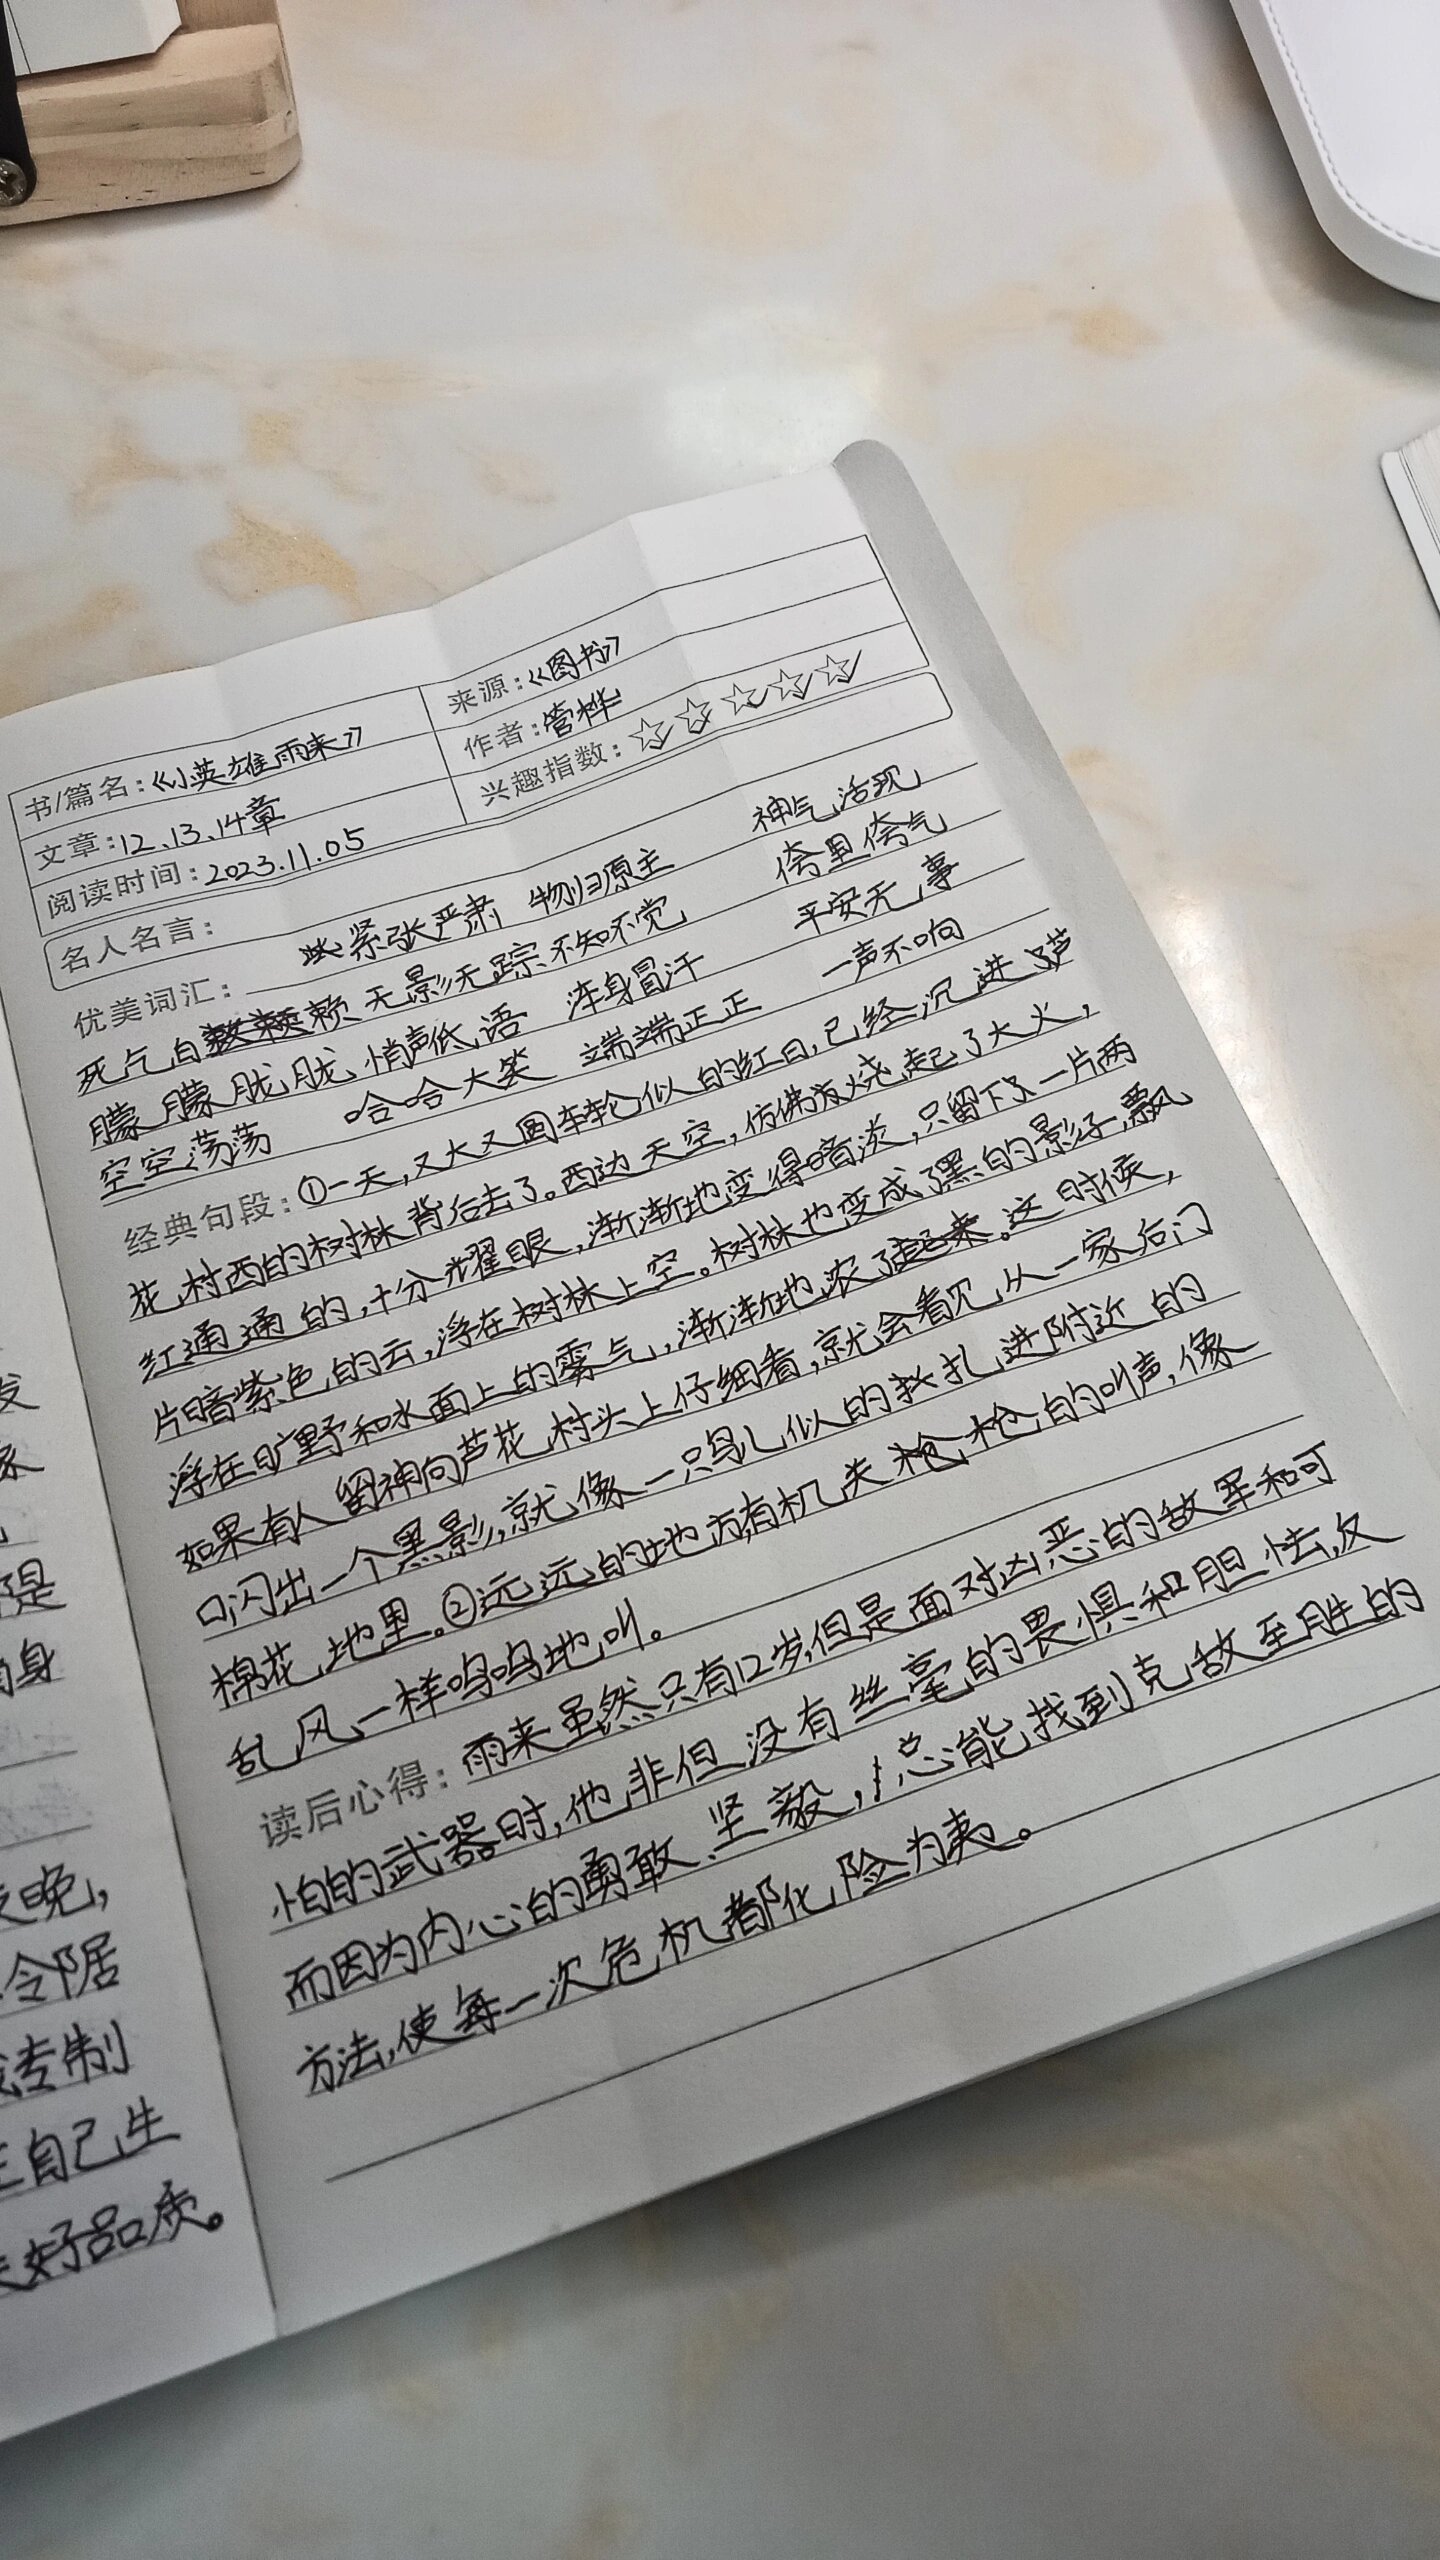 书/篇名:《小英雄雨来》
来源:《图书》
文章:12、13、14章
作者:管桦
阅读时间:2023.11.05
兴趣指数:☆☆☆☆☆
名人名言:
优美词汇: 紧张严肃 物归原主 神气活现
死气白赖 无影无踪 不知不觉 侉里侉气
朦朦胧胧 悄声低语 浑身冒汗 平安无事
空空荡荡 哈哈大笑 端端正正 一声不响
经典句段:①一天,又大又圆车轮似的红日,已经沉进芦
花村西的树林背后去了。西边天空,仿佛有烧起了大火,
红通通的,十分耀眼,渐渐地变得暗淡,只留下了一片两
片暗紫色的云,浮在树林上空。树林也变成了黑的影子,飘
浮在旷野和水面上的雾气,渐渐地浓了起来。这时候,
如果有人留神向芦花村头上仔细看,就会看见,从一家后门
口闪出一个黑影,就像一只鸟儿似的扎进附近的
棉花地里。②远远的地方,有机关枪的叫声,像
乱风一样呜呜地叫。
读后心得:雨来虽然只有12岁,但是面对凶恶的敌军和可
怕的武器时,他非但没有丝毫的畏惧和胆怯,反
而因为内心的勇敢、坚毅,总能找到克敌至胜的
方法,使每一次危机都化险为夷。
发
是
身
晚,
邻居
专制
自己生
好品质。